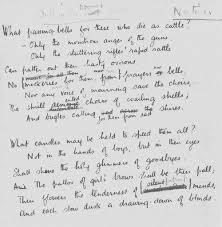 What passing bells for these who die as cattle?
- Only the monstrous anger of the guns.
Only the stuttering rifles' rapid rattle
Can patter out their hasty orisons
No mockeries for them; from prayers or bells,
Nor any voice of mourning save the choirs,
The shrill demented choirs of wailing shells;
And bugles calling
for them from sad
What candles may be held to speed them all?
Not in the hands of boys, but in their eyes
Shall shine the holy glimmers of goodbyes
And The pallor of girls' brows shall be their pall;
Their flowers the tenderness of silent minds,
And each slow dusk a drawing-down of blinds.